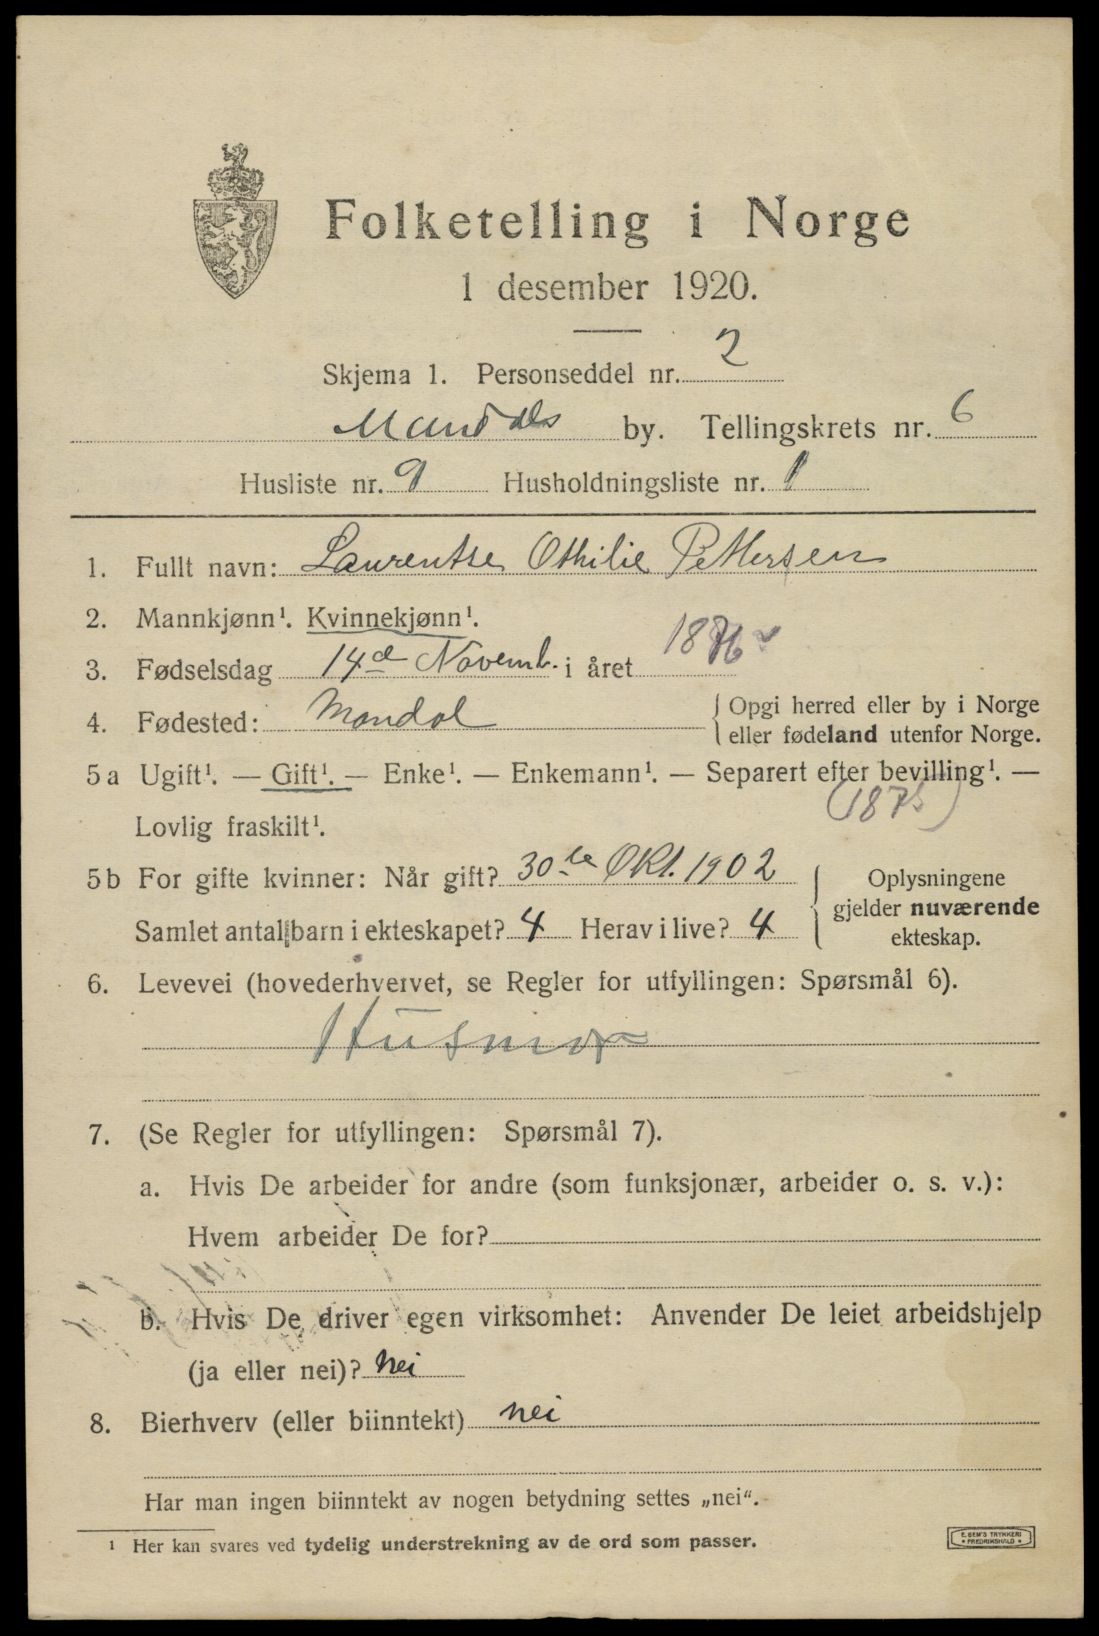 Folketelling i Norge
1 desember 1920.
Skjema 1. Personseddel nr. 2
Mandals by. Tellingskrets nr. 6
Husliste nr. 9 Husholdningsliste nr. 1
1. Fullt navn: Laurentse Othilie Pettersen
2. Mannkjønn¹. Kvinnekjønn¹.
3. Fødselsdag 14de Novemb. i året 1876
4. Fødested: Mandal
{ Opgi herred eller by i Norge
eller fødeland utenfor Norge.
5 a Ugift¹. — Gift¹. — Enke¹. — Enkemann¹. — Separert efter bevilling¹. —
Lovlig fraskilt¹.
(1875)
5 b For gifte kvinner: Når gift? 30te Okt. 1902
Samlet antal barn i ekteskapet? 4 Herav i live? 4
{ Oplysningene
gjelder nuværende
ekteskap.
6. Levevei (hovederhvervet, se Regler for utfyllingen: Spørsmål 6).
Husmor
7. (Se Regler for utfyllingen: Spørsmål 7).
a. Hvis De arbeider for andre (som funksjonær, arbeider o. s. v.):
Hvem arbeider De for?
b. Hvis De driver egen virksomhet: Anvender De leiet arbeidshjelp
(ja eller nei)? Nei
8. Bierhverv (eller biinntekt) nei
Har man ingen biinntekt av nogen betydning settes „nei“.
¹ Her kan svares ved tydelig understrekning av de ord som passer.
E. SEM'S TRYKKERI
• FREDRIKSHALD •